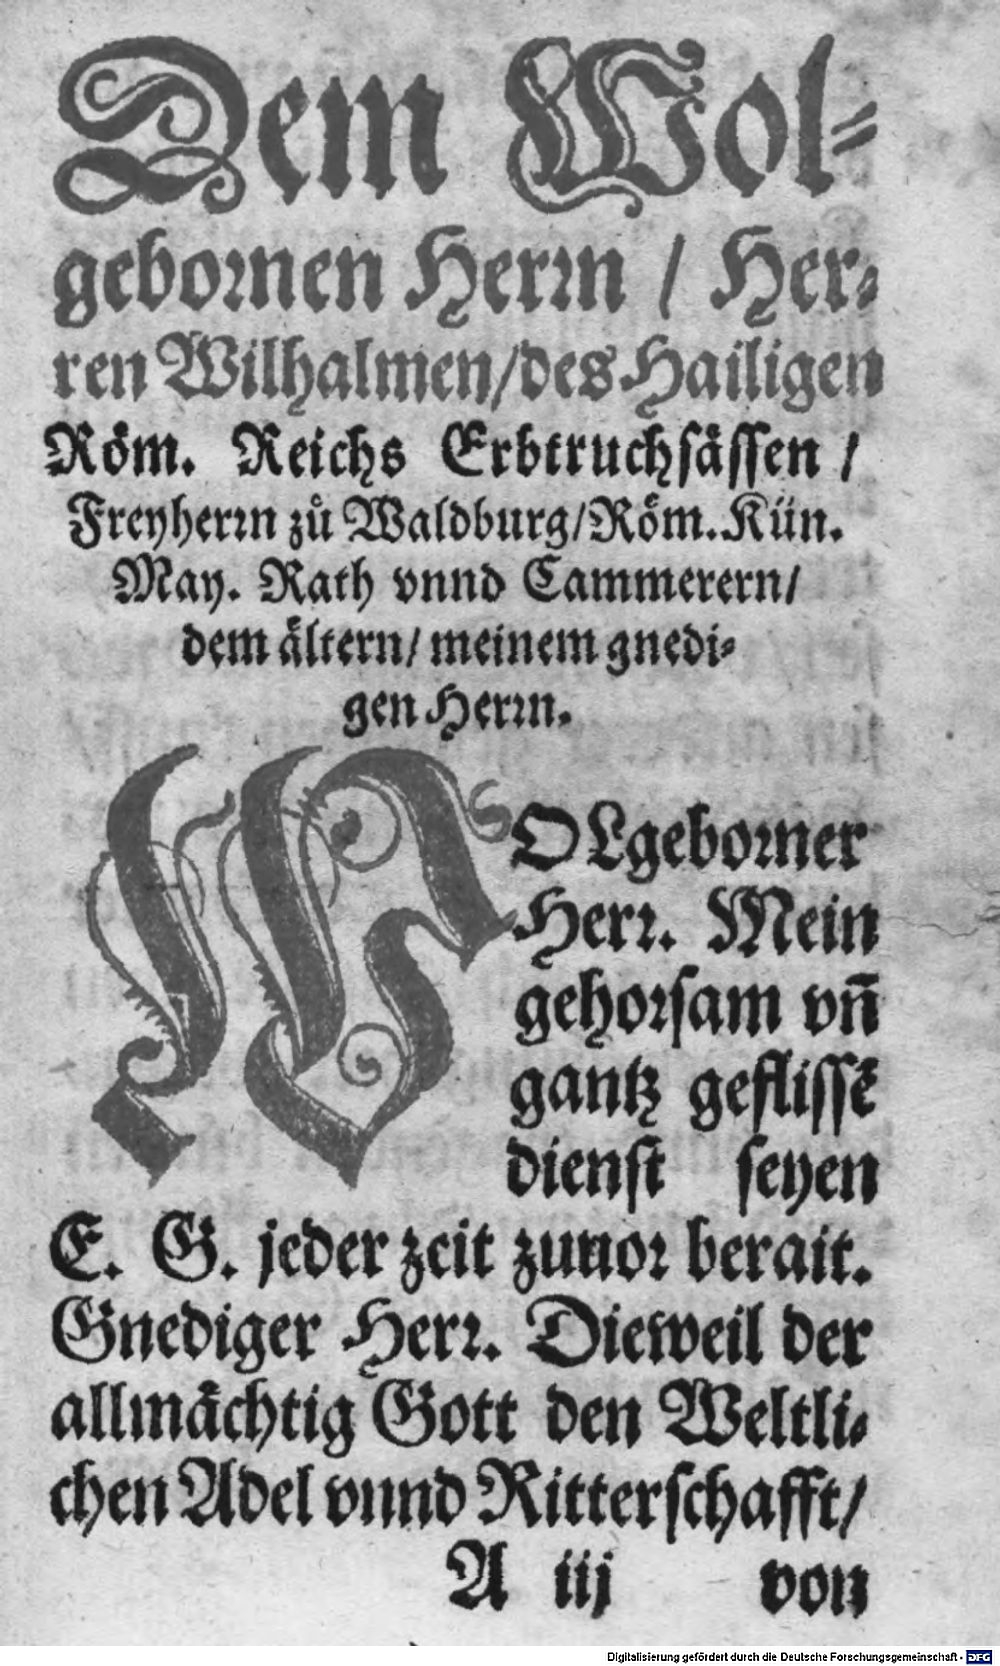 Dem Wol⸗
gebornen Herrn / Her⸗
ren Wilhalmen/des Hailigen
Röm. Reichs Erbtruchsässen /
Freyherrn zů Waldburg/Röm. Kün.
May. Rath vnnd Cammerern/
dem ältern/ meinem gnedi⸗
gen Herrn.
WOLgeborner
Herr. Mein
gehorsam vn̄
gantz geflissē
dienst seyen
E. G. jeder zeit zuuor berait.
Gnediger Herr. Dieweil der
allmächtig Gott den Weltli⸗
chen Adel vnnd Ritterschafft/
A iij von
Digitalisierung gefördert durch die Deutsche Forschungsgemeinschaft - DFG